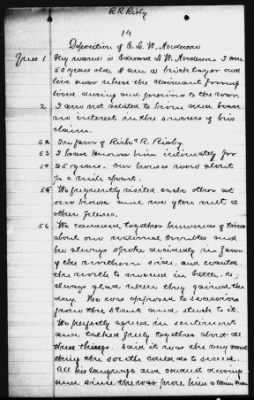 R R Rixby
14
Deposition of E. S. W. Nordmeon
Ques 1 My name is Edward S W. Nordmeon I am
50 year old I am a brick layer and
live near where the claimant formerly
lived during and previous to the war
2 I am not related to him and have
no interest in the success of his
claim.
52 In favor of Rixby R. Rixby.
53 I have known him intimately for
54 25 years. Our homes were about
½ a mile apart.
55 We frequently visited each other at
our homes and we often met at
other places.
56 We conversed together hundreds of times
about our national troubles and
he always spoke decidedly in favor
of the northern side, and wanted
the north to succeed in battle &c,
always glad when they gained the
day. He was opposed to secession
from the start and stuck to it.
We perfectly agreed in sentiment
and talked freely together about all
these things. Said it was the very worst
thing the south could do to secede.
All his language and conduct during
and since the war prove him a Union man